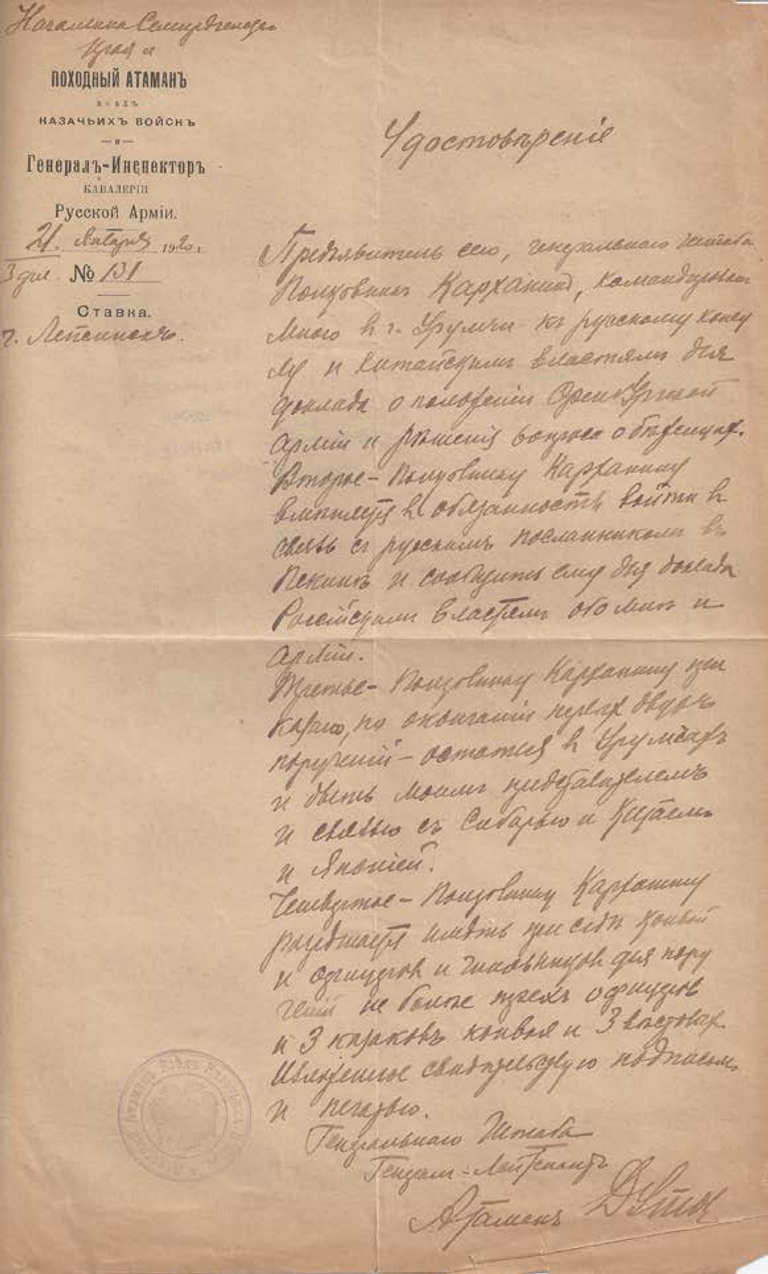 Начальника Семиреченскаго
Края и
ПОХОДНЫЙ АТАМАНЪ
ВСѢХЪ
КАЗАЧЬИХЪ ВОЙСКЪ
— и —
Генералъ-Инспекторъ
КАВАЛЕРІИ
Русской Арміи.
21. Января 1920 г.
№ 131
Ставка.
г. Лепсинскъ.
Удостовѣреніе
Предъявитель сего, генеральнаго штаба
Полковникъ Карханинъ, командированъ
мною въ г. Урумчи къ русскому консу
лу и китайскимъ властямъ для
доклада о положеніи Оренбургской
арміи и рѣшенія вопроса о бѣженцах.
Второе – Полковнику Карханину
вмѣняется в обязанность войти в
связь съ русскимъ посланникомъ въ
Пекинѣ и сообщить ему для доклада
Россійскимъ властямъ обо мнѣ и
арміи.
Третье – Полковнику Карханину при
казано, по окончаніи первых двухъ
порученій – остаться в Урумчахъ
и быть моимъ представителемъ
и связью съ Сибирью и Китаемъ
и Японіей.
Четвертое – Полковнику Карханину
разрѣшается имѣть при себѣ конвой
и офицеров и чиновников для пору
ченій не болѣе трехъ офицеров
и 3 казаковъ конвоя и 3 вѣстовых.
Изложенное свидѣтельствую подписом
и печатью.
Генеральнаго Штаба
Генерал-Лейтенантъ
Атаманъ Дутов